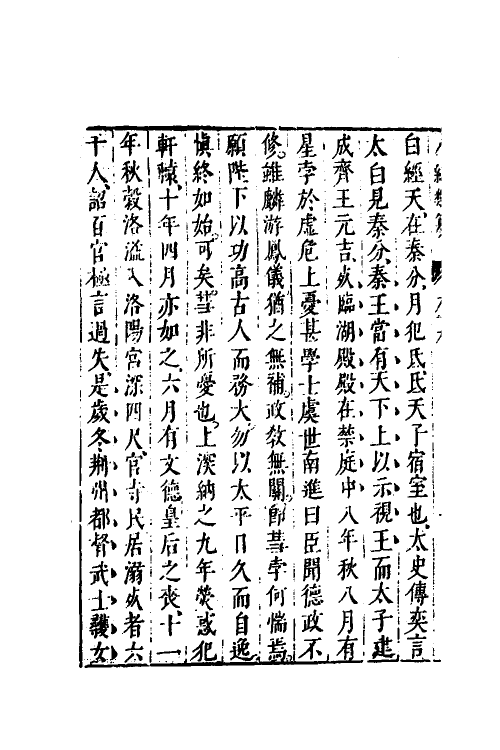 白經天在秦分月犯氐氐天子宿室也太史傳奕言
太白見秦分秦王當有天下上以示視王而太子建
成齊王元吉死臨湖殿殿在禁庭中八年秋八月有
星孛於虛危上憂甚學士虞世南進曰臣聞德政不
修雖麟游鳳儀猶之無補政教無闕卽彗孛何惴焉
願陛下以功高古人而務大勿以太平日久而自逸
愼終如始可矣彗非所憂也上深納之九年熒惑犯
軒轅十年四月亦如之六月有文德皇后之喪十一
年秋穀洛溢入洛陽宮深四尺官寺民居溺死者六
千人詔百官極言過失是歲冬荆州都督武士彠女